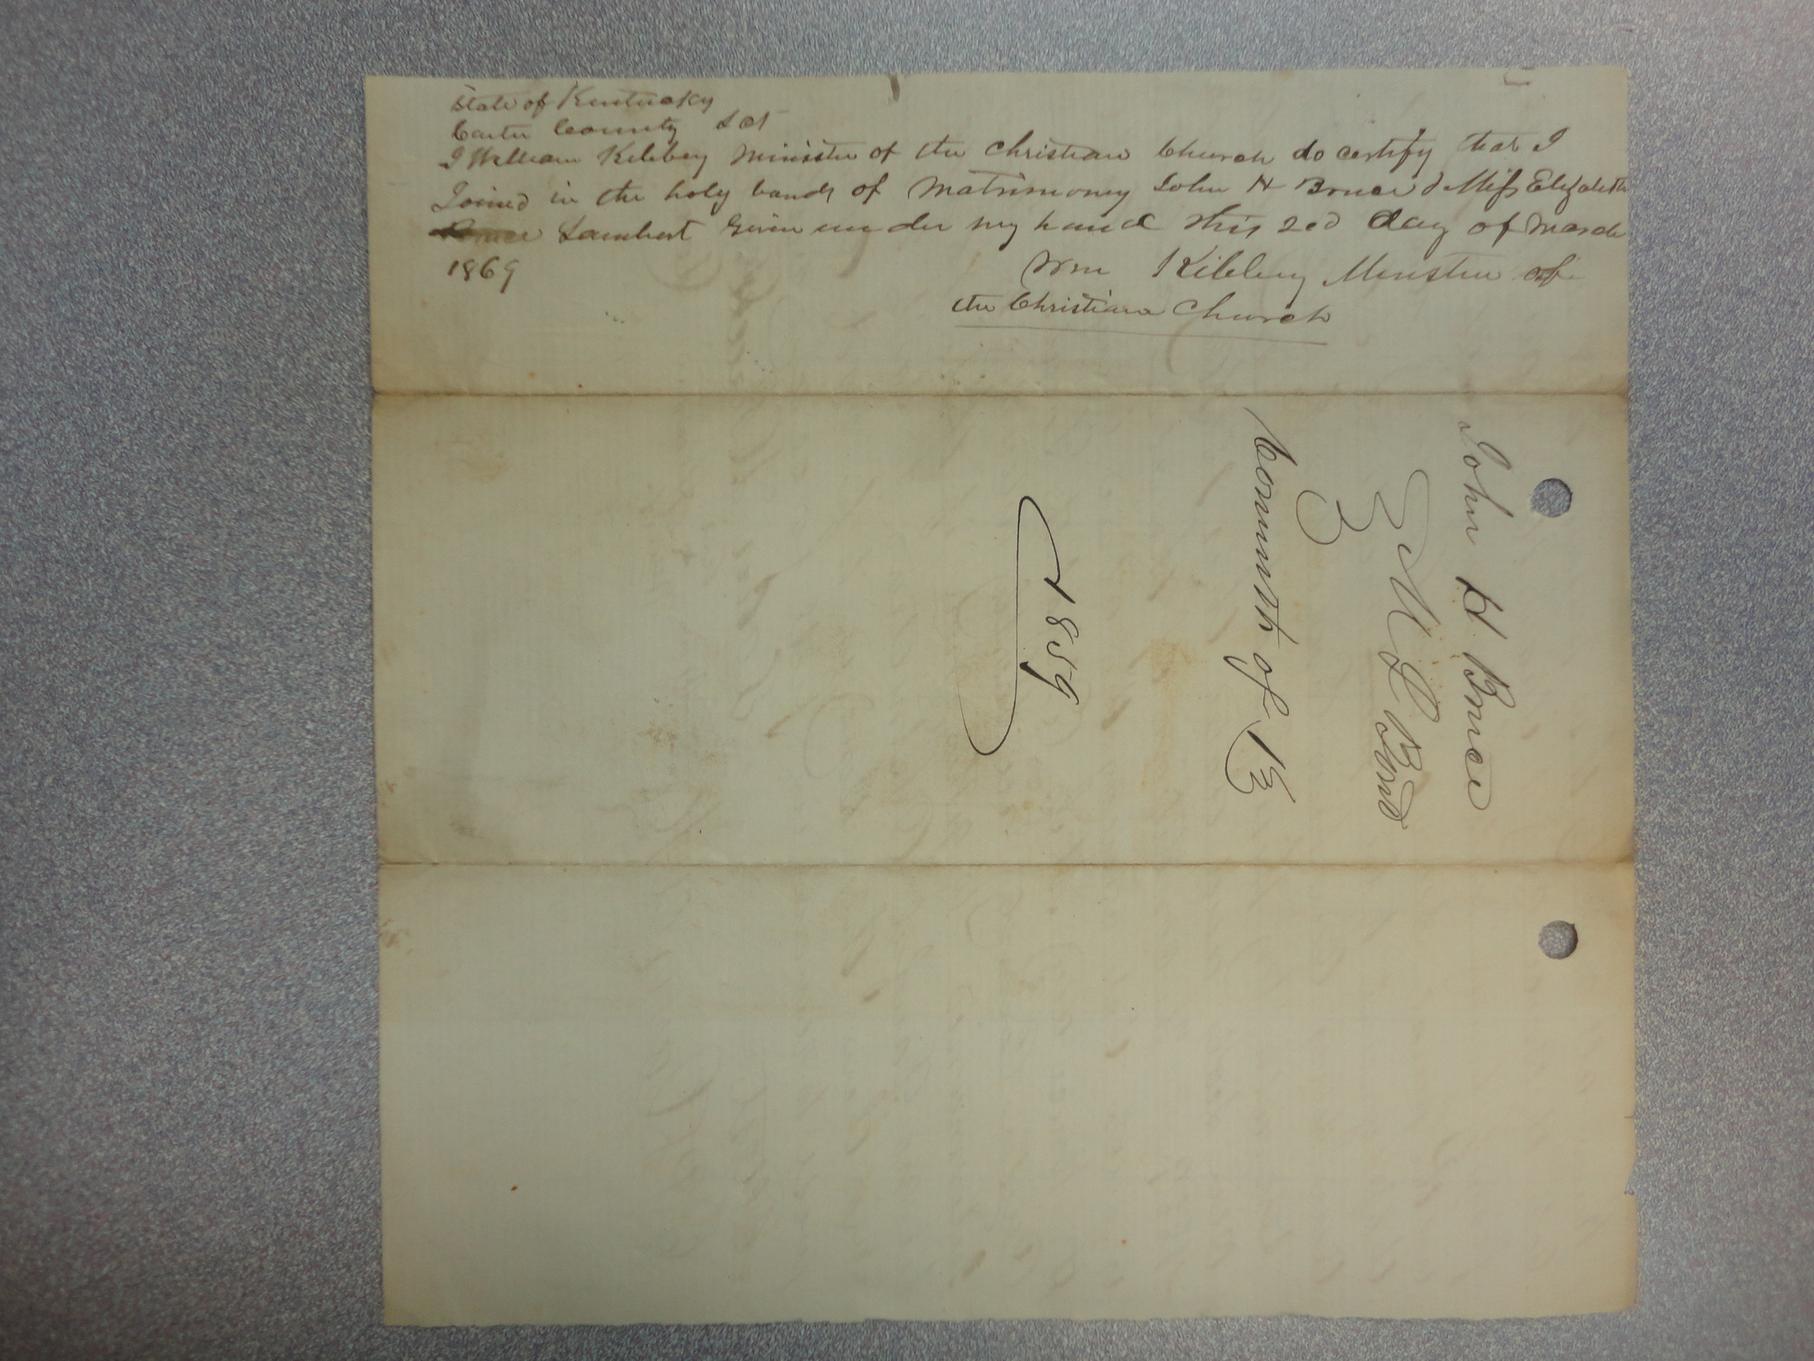 State of Kentucky
Carter County Sct
I William Kibbey Minister of the Christian Church do certify that I
Joined in the holy bands of Matrimony John H Bruce & Miss Elizabeth
Lambert Given under my hand this 2ed day of March
1869
Wm Kibbey Minister of
the Christian Church
John H Bruce
M L Bond
Commth of Ky
1859